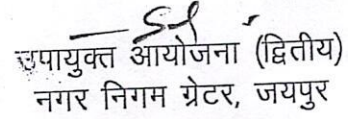 उपायुक्त आयोजना (द्वितीय)
नगर निगम ग्रेटर, जयपुर